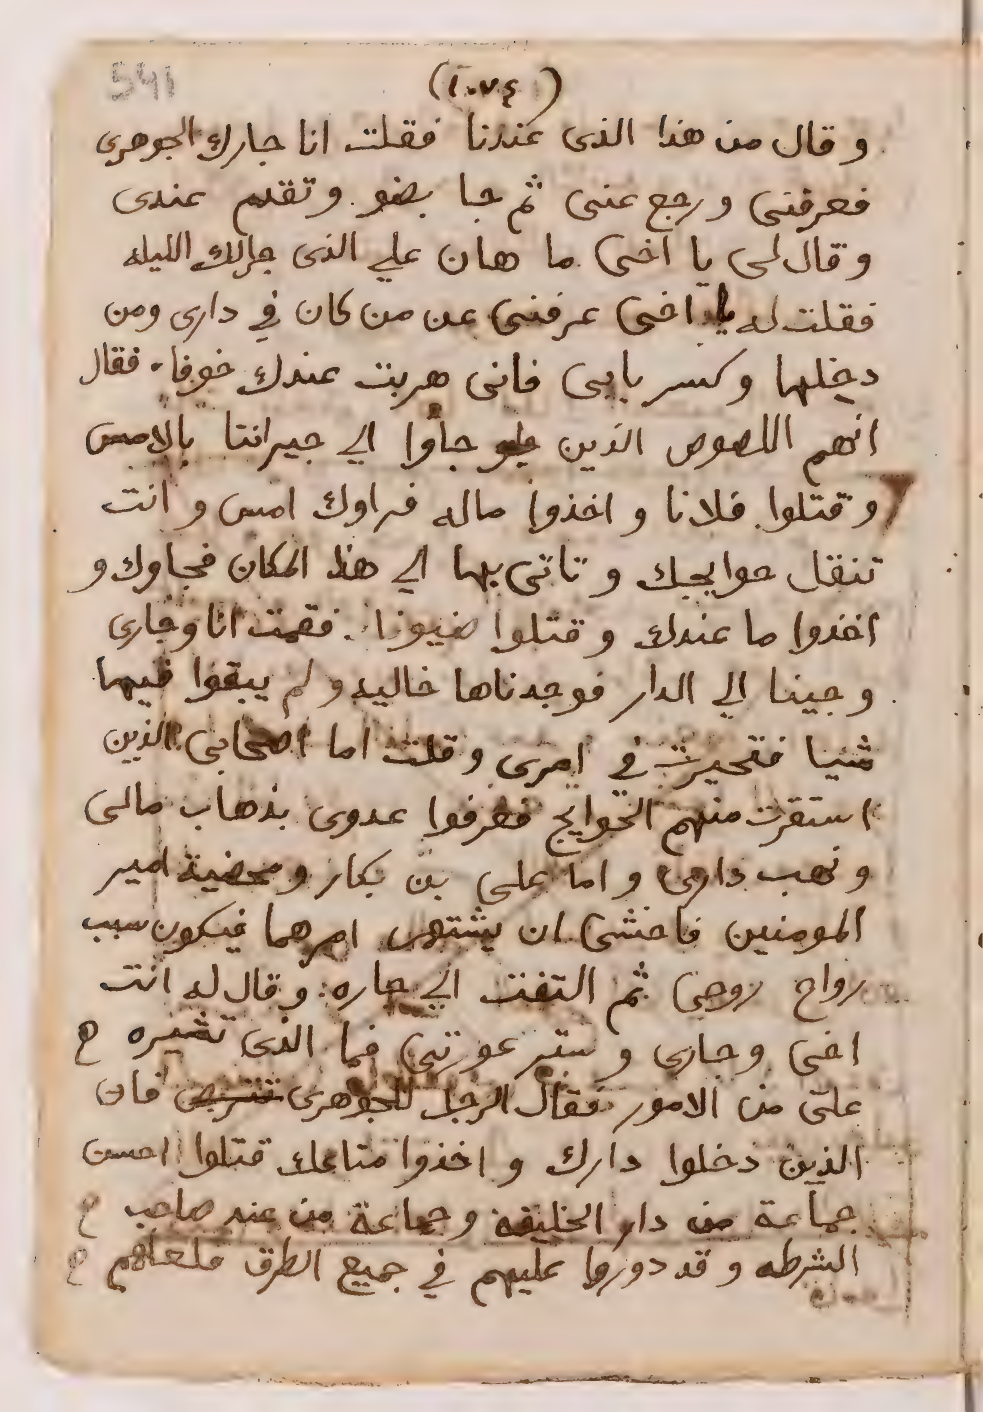 541
(١٠٧٤)
وقال من هذا الذى عندنا فقلت انا جارك الجوهرى
فعرفنى ورجع عنى ثم جا بضو وتقدم عندى
وقال لى يا اخى ما هان علي الذى جرالك الليله
فقلت له يا اخى عرفنى عن من كان في دارى ومن
دخلها وكسر بابى فانى هربت عندك خوفا فقال
انهم اللصوص الذين جاوا الي جيراننا بالامس
وقتلوا فلانا واخذوا ماله فراوك امس وانت
تنقل حوايجك وتاتى بها الي هذا المكان فجاوك و
اخذوا ما عندك وقتلوا ضيوفا فقمت انا وجارى
وجينا الي الدار فوجدناها خاليه ولم يبقوا فيها
شيا فتحيرت في امرى وقلت اما اصحابى الذين
استقرت منهم الحوايج فعرفوا عدوى بذهاب مالى
ونهب دارى واما على بن بكار ومحضية امير
المومنين فاخشى ان يشتهر امرهما فيكون سبب
رواح روحى ثم التفت الي جاره وقال له انت
اخى وجارى وستر عورتى فما الذى تشيره
على من الامور فقال الرجل للجوهرى تتربص فان
الذين دخلوا دارك واخذوا متاعك قتلوا احسن
جماعة من دار الخليفة وجماعة من عند صاحب
الشرطه وقد دوروا عليهم في جميع الطرق فلعلهم